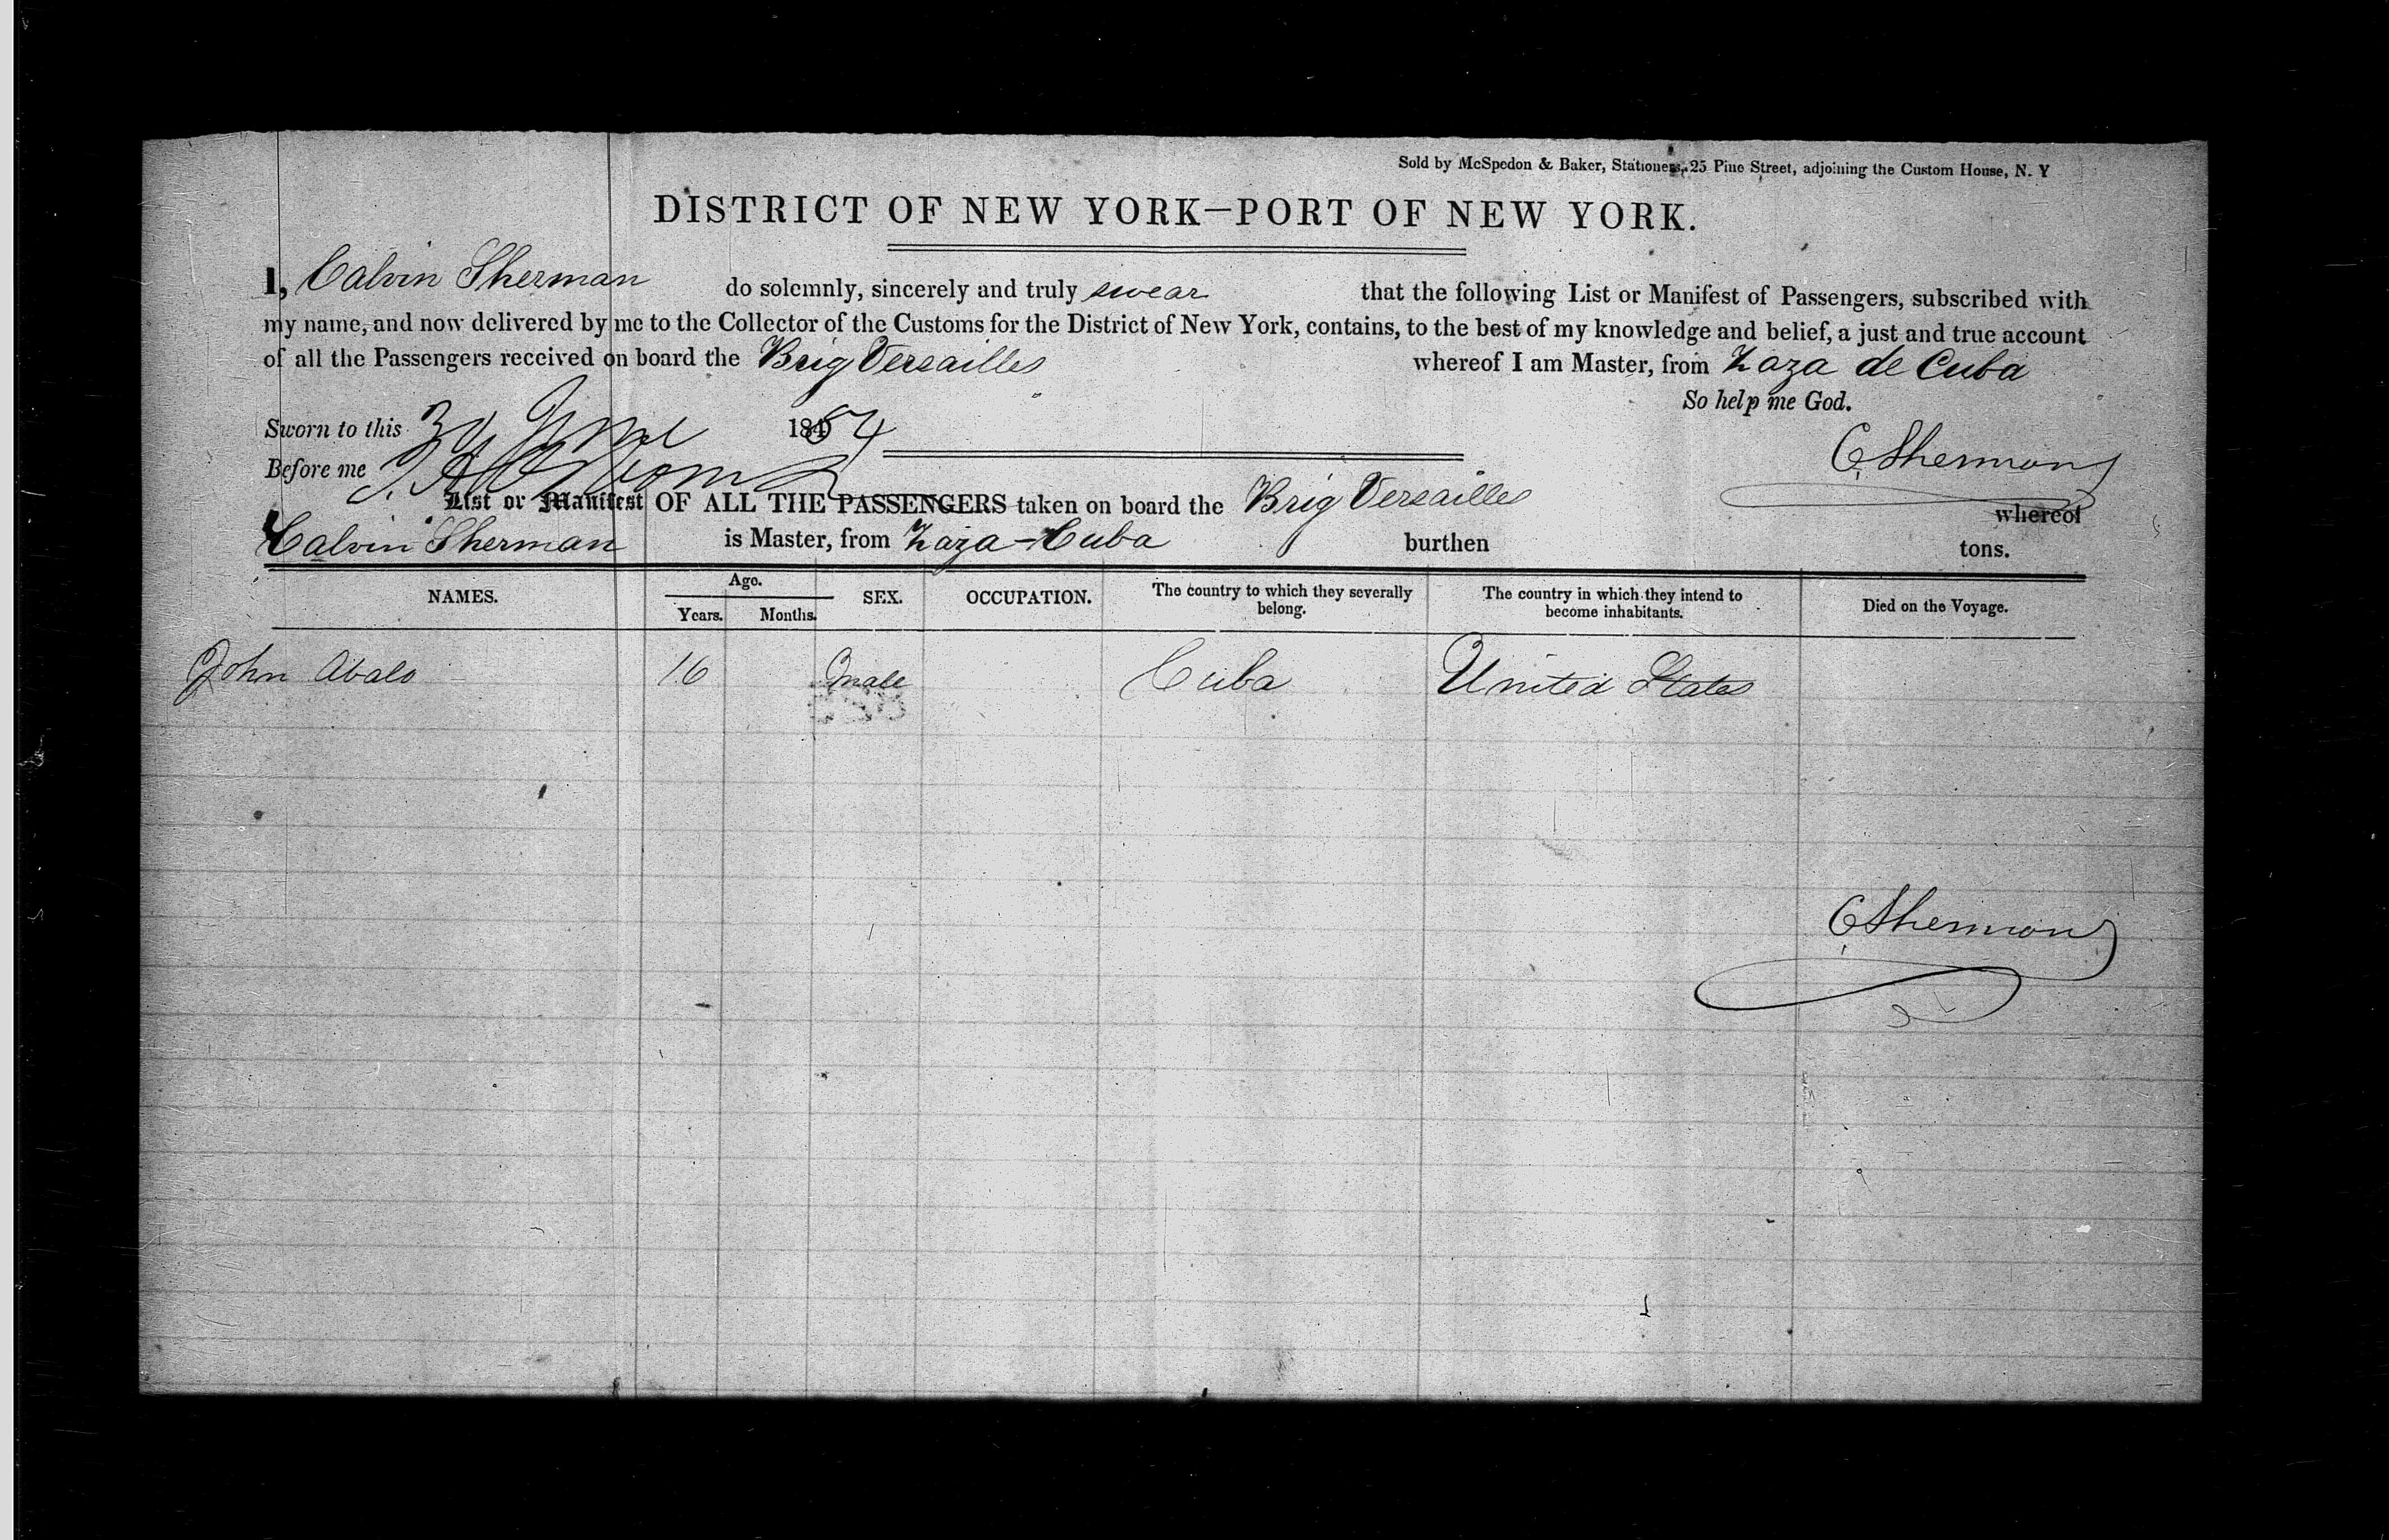 Sold by McSpedon & Baker, Stationers, 25 Pine Street, adjoining the Custom House, N. Y
DISTRICT OF NEW YORK—PORT OF NEW YORK.
I, Calvin Sherman do solemnly, sincerely and truly swear that the following List or Manifest of Passengers, subscribed with
my name, and now delivered by me to the Collector of the Customs for the District of New York, contains, to the best of my knowledge and belief, a just and true account
of all the Passengers received on board the Brig Versailles whereof I am Master, from Zaza de Cuba
So help me God.
Sworn to this June 1854
C Sherman
Before me
List or Manifest OF ALL THE PASSENGERS taken on board the Brig Versailles whereof
Calvin Sherman is Master, from Zaza - Cuba burthen tons.
NAMES. Age. Years. Months. SEX. OCCUPATION. The country to which they severally belong. The country in which they intend to become inhabitants. Died on the Voyage.
John Abalo 16 male Cuba United States
C Sherman